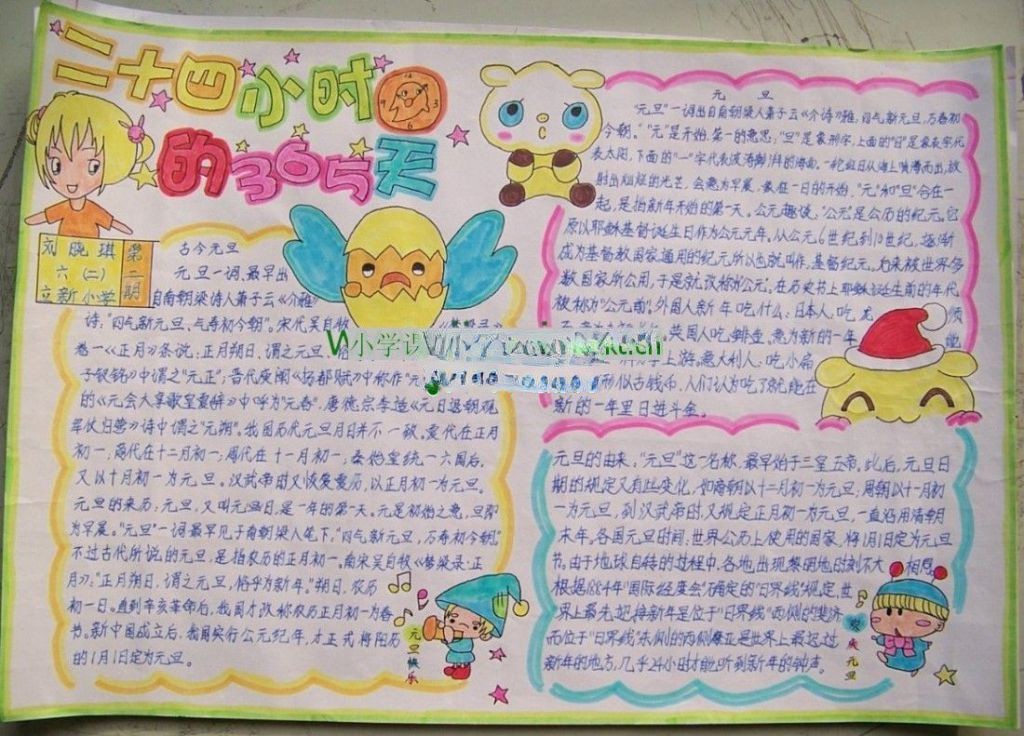 二十四小时
的365天
刘晓琪
六(二)
立新小学
第二期
古今元旦
元旦一词,最早出
自南朝梁诗人萧子云《介雅》
诗:"四气新元旦、气寿初今朝"。宋代吴自牧
卷一《正月》条说:正月朔日,谓之元旦,
子钗铭》中谓之"元正";晋代庾阐《扬都赋》中称作"元
的《元会大享歌皇夏辞》中呼为"元春",唐德宗李适《元日退朝观
军仗归营》诗中谓之"元朔"。我国历代元旦月日并不一致。夏代在正月
初一,商代在十二月初一,周代在十一月初一,秦始皇统一六国后,
又以十月初一为元旦。汉武帝时又恢复夏历,以正月初一为元旦。
元旦的来历:元旦,又叫元,是一年的第一天。元是初始之意,旦即
为早晨。"元旦"一词最早见于南朝梁人笔下,"四气新元旦,万寿初今朝"
不过古代所说的元旦,是指农历的正月初一。南宋吴自牧《梦梁录·正
月》:"正月朔日,谓之元旦,俗乎为新年。"朔日,农历
初一日。直到辛亥革命后,我国才改称农历正月初一为春
节。新中国成立后,我国实行公元纪年,才正式将阳历
的1月1日定为元旦。
元旦快乐
元旦
"元旦"一词出自南朝梁人萧子云《介诗》雅,四气新元旦,万寿初
今朝。"元"是开始,第一的意思;"旦"是象形字,上面的"日"
代表太阳,下面的"一"字代表波涛澎湃的海面。一轮红日从海上喷薄而出,放
射出灿烂的光芒,会意为早晨,象征一日的开始,"元"和"旦"合在一
起,是指新年开始的第一天。公元趣谈:"公元"是公历的纪元。它
原以耶稣基督诞生日作为公元元年。从公元6世纪到10世纪,逐渐
成为基督教国家通用的纪元所以也就叫作,基督纪元。后来被世界多
数国家所公用,于是就改称为公元,在历史书上耶稣诞生前的年代
被称为"公元前"。外国人新年吃什么:日本人,吃龙须
英国人吃鲱鱼,意为新的一年
力争上游。意大利人:吃小扁
形似古钱币,人们认为吃了就能在
新的一年里日进斗金。
元旦的由来,"元旦"这一名称,最早始于三皇五帝。此后,元旦日
期的规定又有些变化,如商朝以十二月初一为元旦,周朝以十一月初
一为元旦,到汉武帝时,又规定正月初一为元旦,一直沿用清朝
末年。各国元旦时间:世界公历上使用的国家,将1月1日定为元旦
节。由于地球自转的过程中,各地出现黎明地时刻不大相同。
根据1884年"国际经度会"确定的"日界线"规定,世
界上最先迎接新年是位于"日界线"西侧的斐济
而位于"日界线"东侧的西侧摩亚是世界上最迟过
新年的地方,几乎24小时才能听到新年的钟声。
欢庆元旦